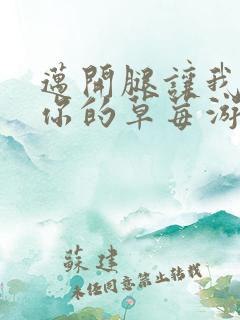 邁開腿讓我
你的草莓游
蘇建
未经同意禁止转载